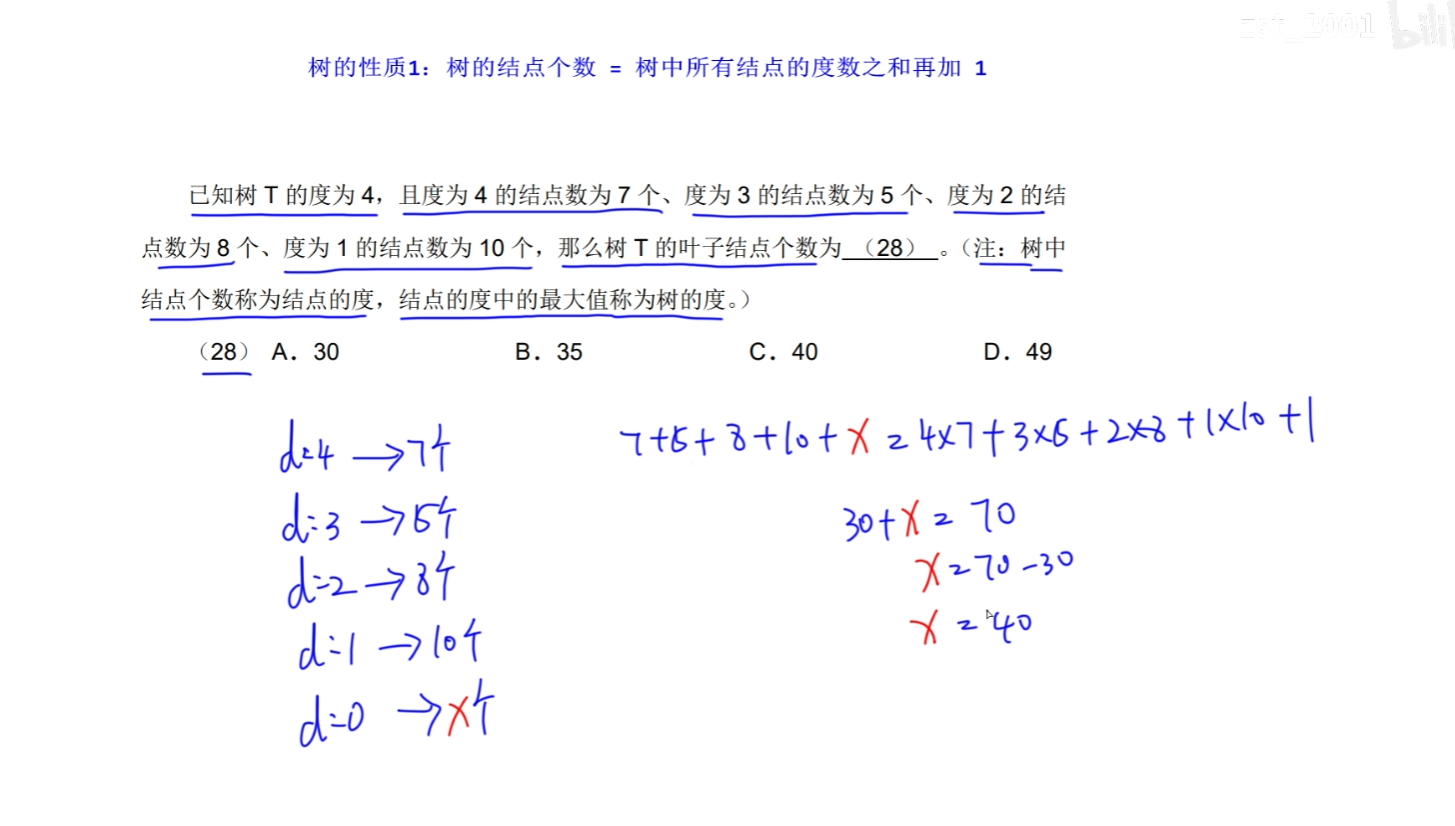 zst_2001 bili
树的性质1：树的结点个数 = 树中所有结点的度数之和再加 1
已知树 T 的度为 4，且度为 4 的结点数为 7 个、度为 3 的结点数为 5 个、度为 2 的结
点数为 8 个、度为 1 的结点数为 10 个，那么树 T 的叶子结点个数为 （28） 。（注：树中
结点个数称为结点的度，结点的度中的最大值称为树的度。）
（28） A．30 B．35 C．40 D．49
d=4 →7个
7+5+8+10+x=4×7+3×5+2×8+1×10+1
d=3 →5个
30+x=70
d=2→8个
x=70-30
d=1 →10个
x=40
d=0 →x个